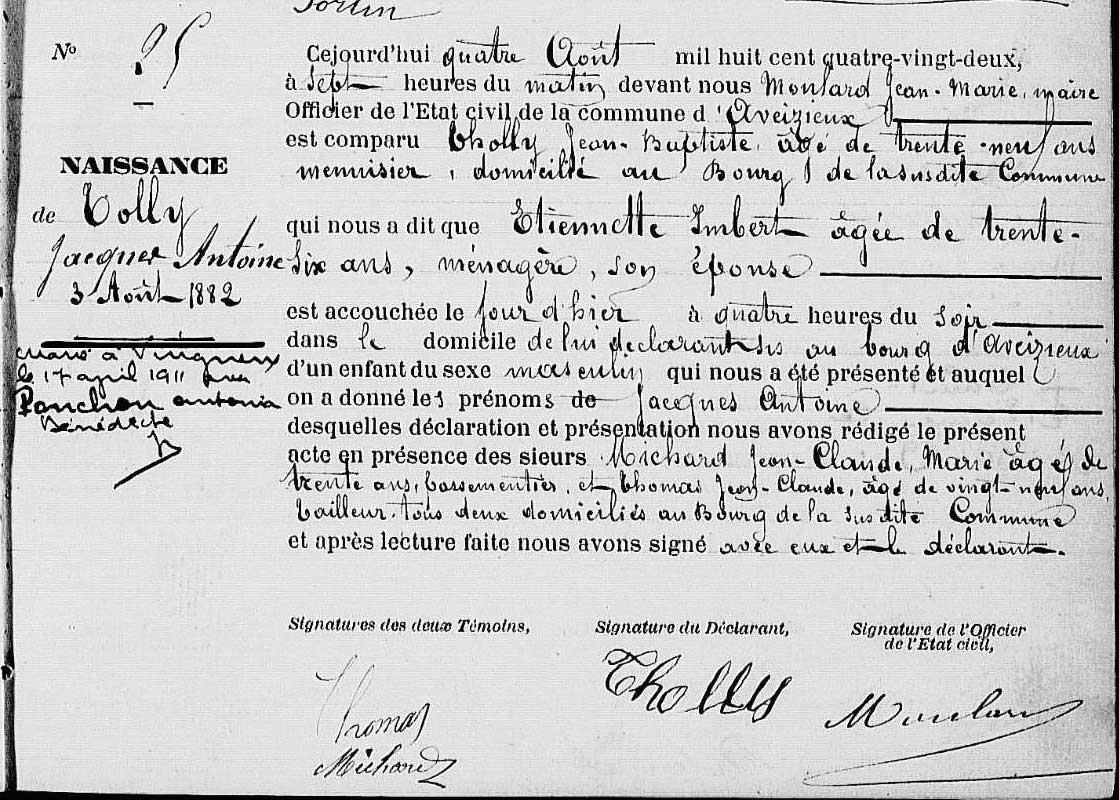 Nº 25
NAISSANCE
de Tolly
Jacques Antoine
3 Août 1882
marié à
le 17 avril 1911 avec
Ponchon Antonia
Bénédicte
Cejourd'hui quatre Août mil huit cent quatre-vingt-deux,
à sept heures du matin devant nous Moulard Jean-Marie, maire
Officier de l'Etat civil de la commune d'Aveizieux
est comparu Tholly Jean-Baptiste, âgé de trente-neuf ans
menuisier, domicilié au Bourg de la susdite Commune
qui nous a dit que Etiennette Imbert âgée de trente-
six ans, ménagère, son épouse
est accouchée le jour d'hier à quatre heures du soir
dans le domicile de lui déclarant sis au bourg d'Aveizieux
d'un enfant du sexe masculin qui nous a été présenté et auquel
on a donné les prénoms de Jacques Antoine
desquelles déclaration et présentation nous avons rédigé le présent
acte en présence des sieurs Michard Jean-Claude, Marie âgé de
trente ans, passementier, et Thomas Jean-Claude, âgé de vingt-neuf ans,
tailleur, tous deux domiciliés au Bourg de la susdite Commune
et après lecture faite nous avons signé avec eux et le déclarant.
Signatures des deux Témoins, Signature du Déclarant, Signature de l'Officier
de l'Etat civil,
Thomas Tholly Moulard
Michard